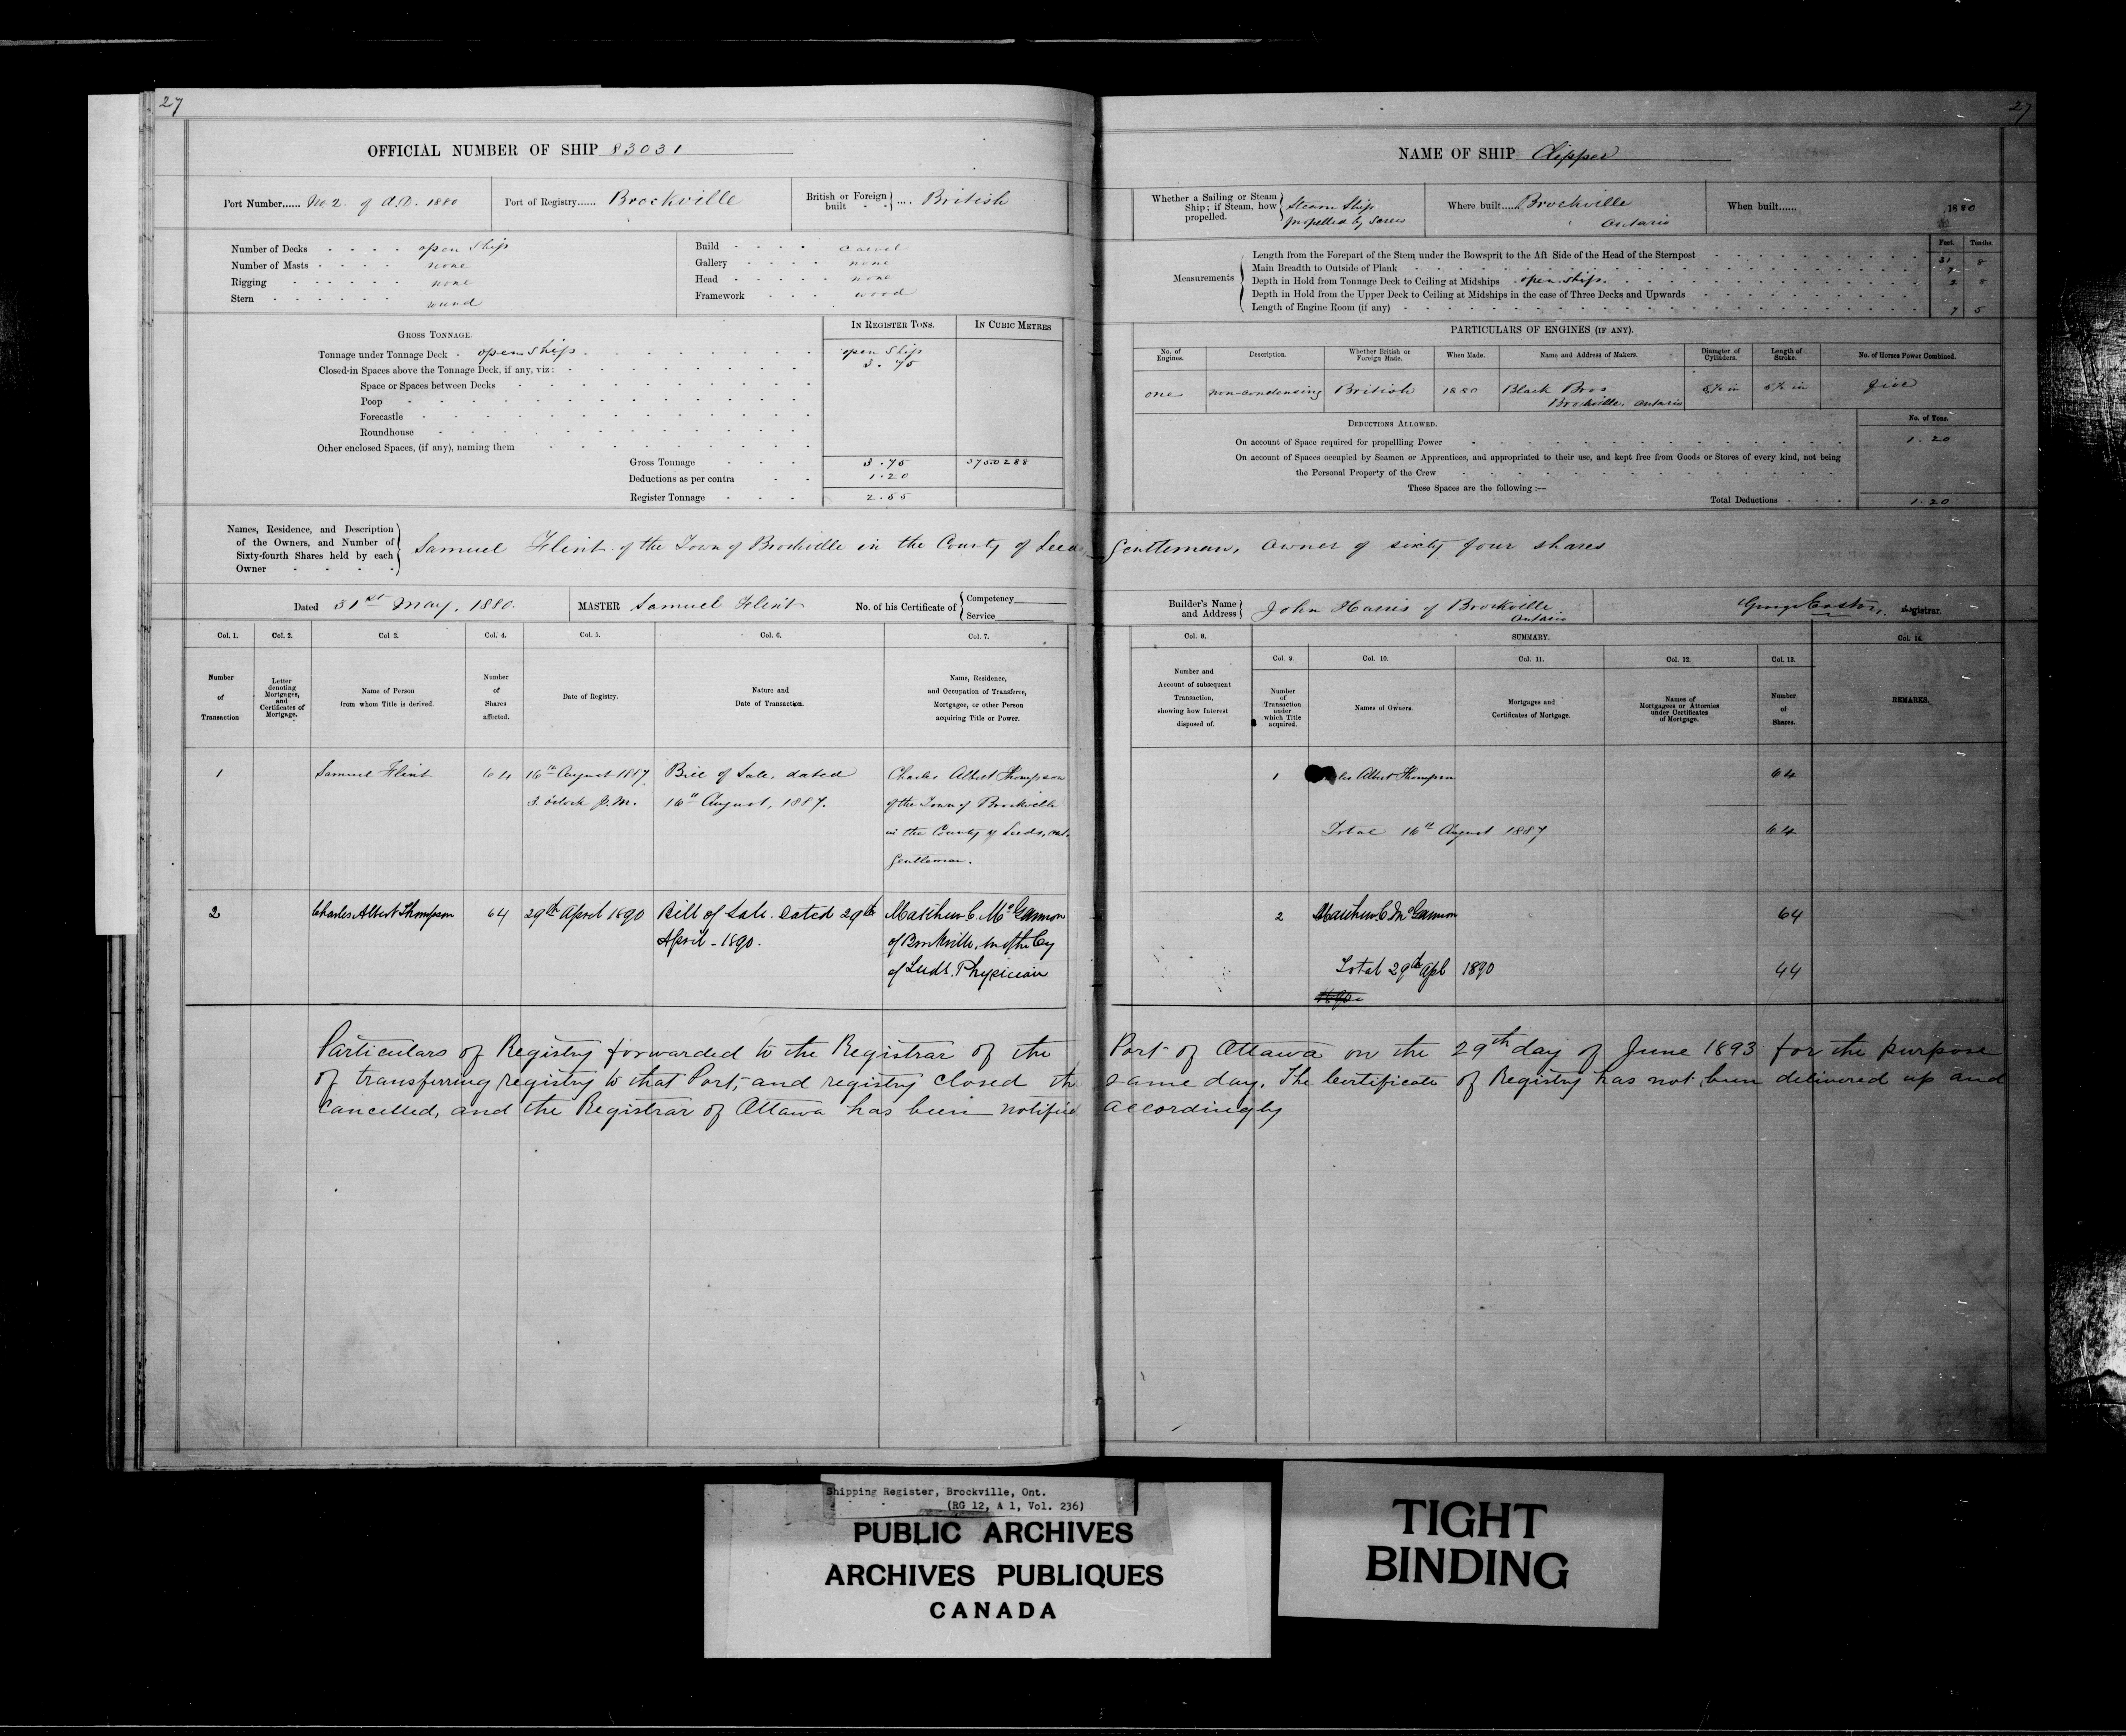 27
OFFICIAL NUMBER OF SHIP 83031
Port Number...... No 2. of A.D. 1880
Port of Registry...... Brockville
British or Foreign built .... British
Number of Decks open ship
Number of Masts none
Rigging none
Stern round
Build carvel
Gallery none
Head none
Framework wood
GROSS TONNAGE.
IN REGISTER TONS.
IN CUBIC METRES
Tonnage under Tonnage Deck open ship open ship
3.75
Closed-in Spaces above the Tonnage Deck, if any, viz:
Space or Spaces between Decks
Poop
Forecastle
Roundhouse
Other enclosed Spaces, (if any), naming them
Gross Tonnage 3.75 3750288
Deductions as per contra 1.20
Register Tonnage 2.55
Names, Residence, and Description
of the Owners, and Number of
Sixty-fourth Shares held by each
Owner
Samuel Flint of the Town of Brockville in the County of Leeds
Dated 31st May, 1880.
MASTER Samuel Flint
No. of his Certificate of
Competency
Service
Col. 1. Col. 2. Col 3. Col. 4. Col. 5. Col. 6. Col. 7.
Number of Transaction
Letter denoting Mortgages, and Certificates of Mortgage.
Name of Person from whom Title is derived.
Number of Shares affected.
Date of Registry.
Nature and Date of Transaction.
Name, Residence, and Occupation of Transferee, Mortgagee, or other Person acquiring Title or Power.
1 Samuel Flint 64 16th August 1887 Bill of Sale, dated Charles Albert Thompson
3. o'clock P.M. 16th August, 1887. of the Town of Brockville
in the County of Leeds, Ont.
Gentleman.
2 Charles Albert Thompson 64 29th April 1890 Bill of Sale. Dated 29th Matthew C. McGannon
April - 1890. of Brockville, in the Cy
of Leeds. Physician
Particulars of Registry forwarded to the Registrar of the
of transferring registry to that Port, and registry closed the
cancelled, and the Registrar of Ottawa has been notified
27
NAME OF SHIP Clipper
Whether a Sailing or Steam
Ship; if Steam, how
propelled.
Steam Ship
propelled by Screw
Where built..... Brockville
Ontario
When built...... 1880
Measurements
Feet. Tenths.
Length from the Forepart of the Stem under the Bowsprit to the Aft Side of the Head of the Sternpost 31 8
Main Breadth to Outside of Plank 7
Depth in Hold from Tonnage Deck to Ceiling at Midships open ship. 2 8
Depth in Hold from the Upper Deck to Ceiling at Midships in the case of Three Decks and Upwards
Length of Engine Room (if any) 7 5
PARTICULARS OF ENGINES (IF ANY).
No. of Engines. Description. Whether British or Foreign Made. When Made. Name and Address of Makers. Diameter of Cylinders. Length of Stroke. No. of Horses Power Combined.
one non-condensing British 1880 Black Bros 5½ in 5½ in five
Brockville, Ontario
DEDUCTIONS ALLOWED.
No. of Tons.
On account of Space required for propellling Power 1.20
On account of Spaces occupied by Seamen or Apprentices, and appropriated to their use, and kept free from Goods or Stores of every kind, not being
the Personal Property of the Crew
These Spaces are the following :—
Total Deductions 1.20
Gentleman, Owner of sixty four shares
Builder's Name
and Address
John Harris of Brockville.
Ontario
George Easton, Registrar.
Col. 8. SUMMARY. Col. 14.
Col. 9. Col. 10. Col. 11. Col. 12. Col. 13.
Number and Account of subsequent Transaction, showing how Interest disposed of.
Number of Transaction under which Title acquired.
Names of Owners.
Mortgages and Certificates of Mortgage.
Names of Mortgagees or Attornies under Certificates of Mortgage.
Number of Shares.
REMARKS.
1 Albert Thompson 64
Total 16th August 1887 64
2 Matthew C McGannon 64
Total 29th Apl 1890 44
1890
Port of Ottawa on the 29th day of June 1893 for the purpose
same day. The Certificate of Registry has not been delivered up and
accordingly
Shipping Register, Brockville, Ont.
(RG 12, A 1, Vol. 236)
PUBLIC ARCHIVES
ARCHIVES PUBLIQUES
CANADA
TIGHT
BINDING